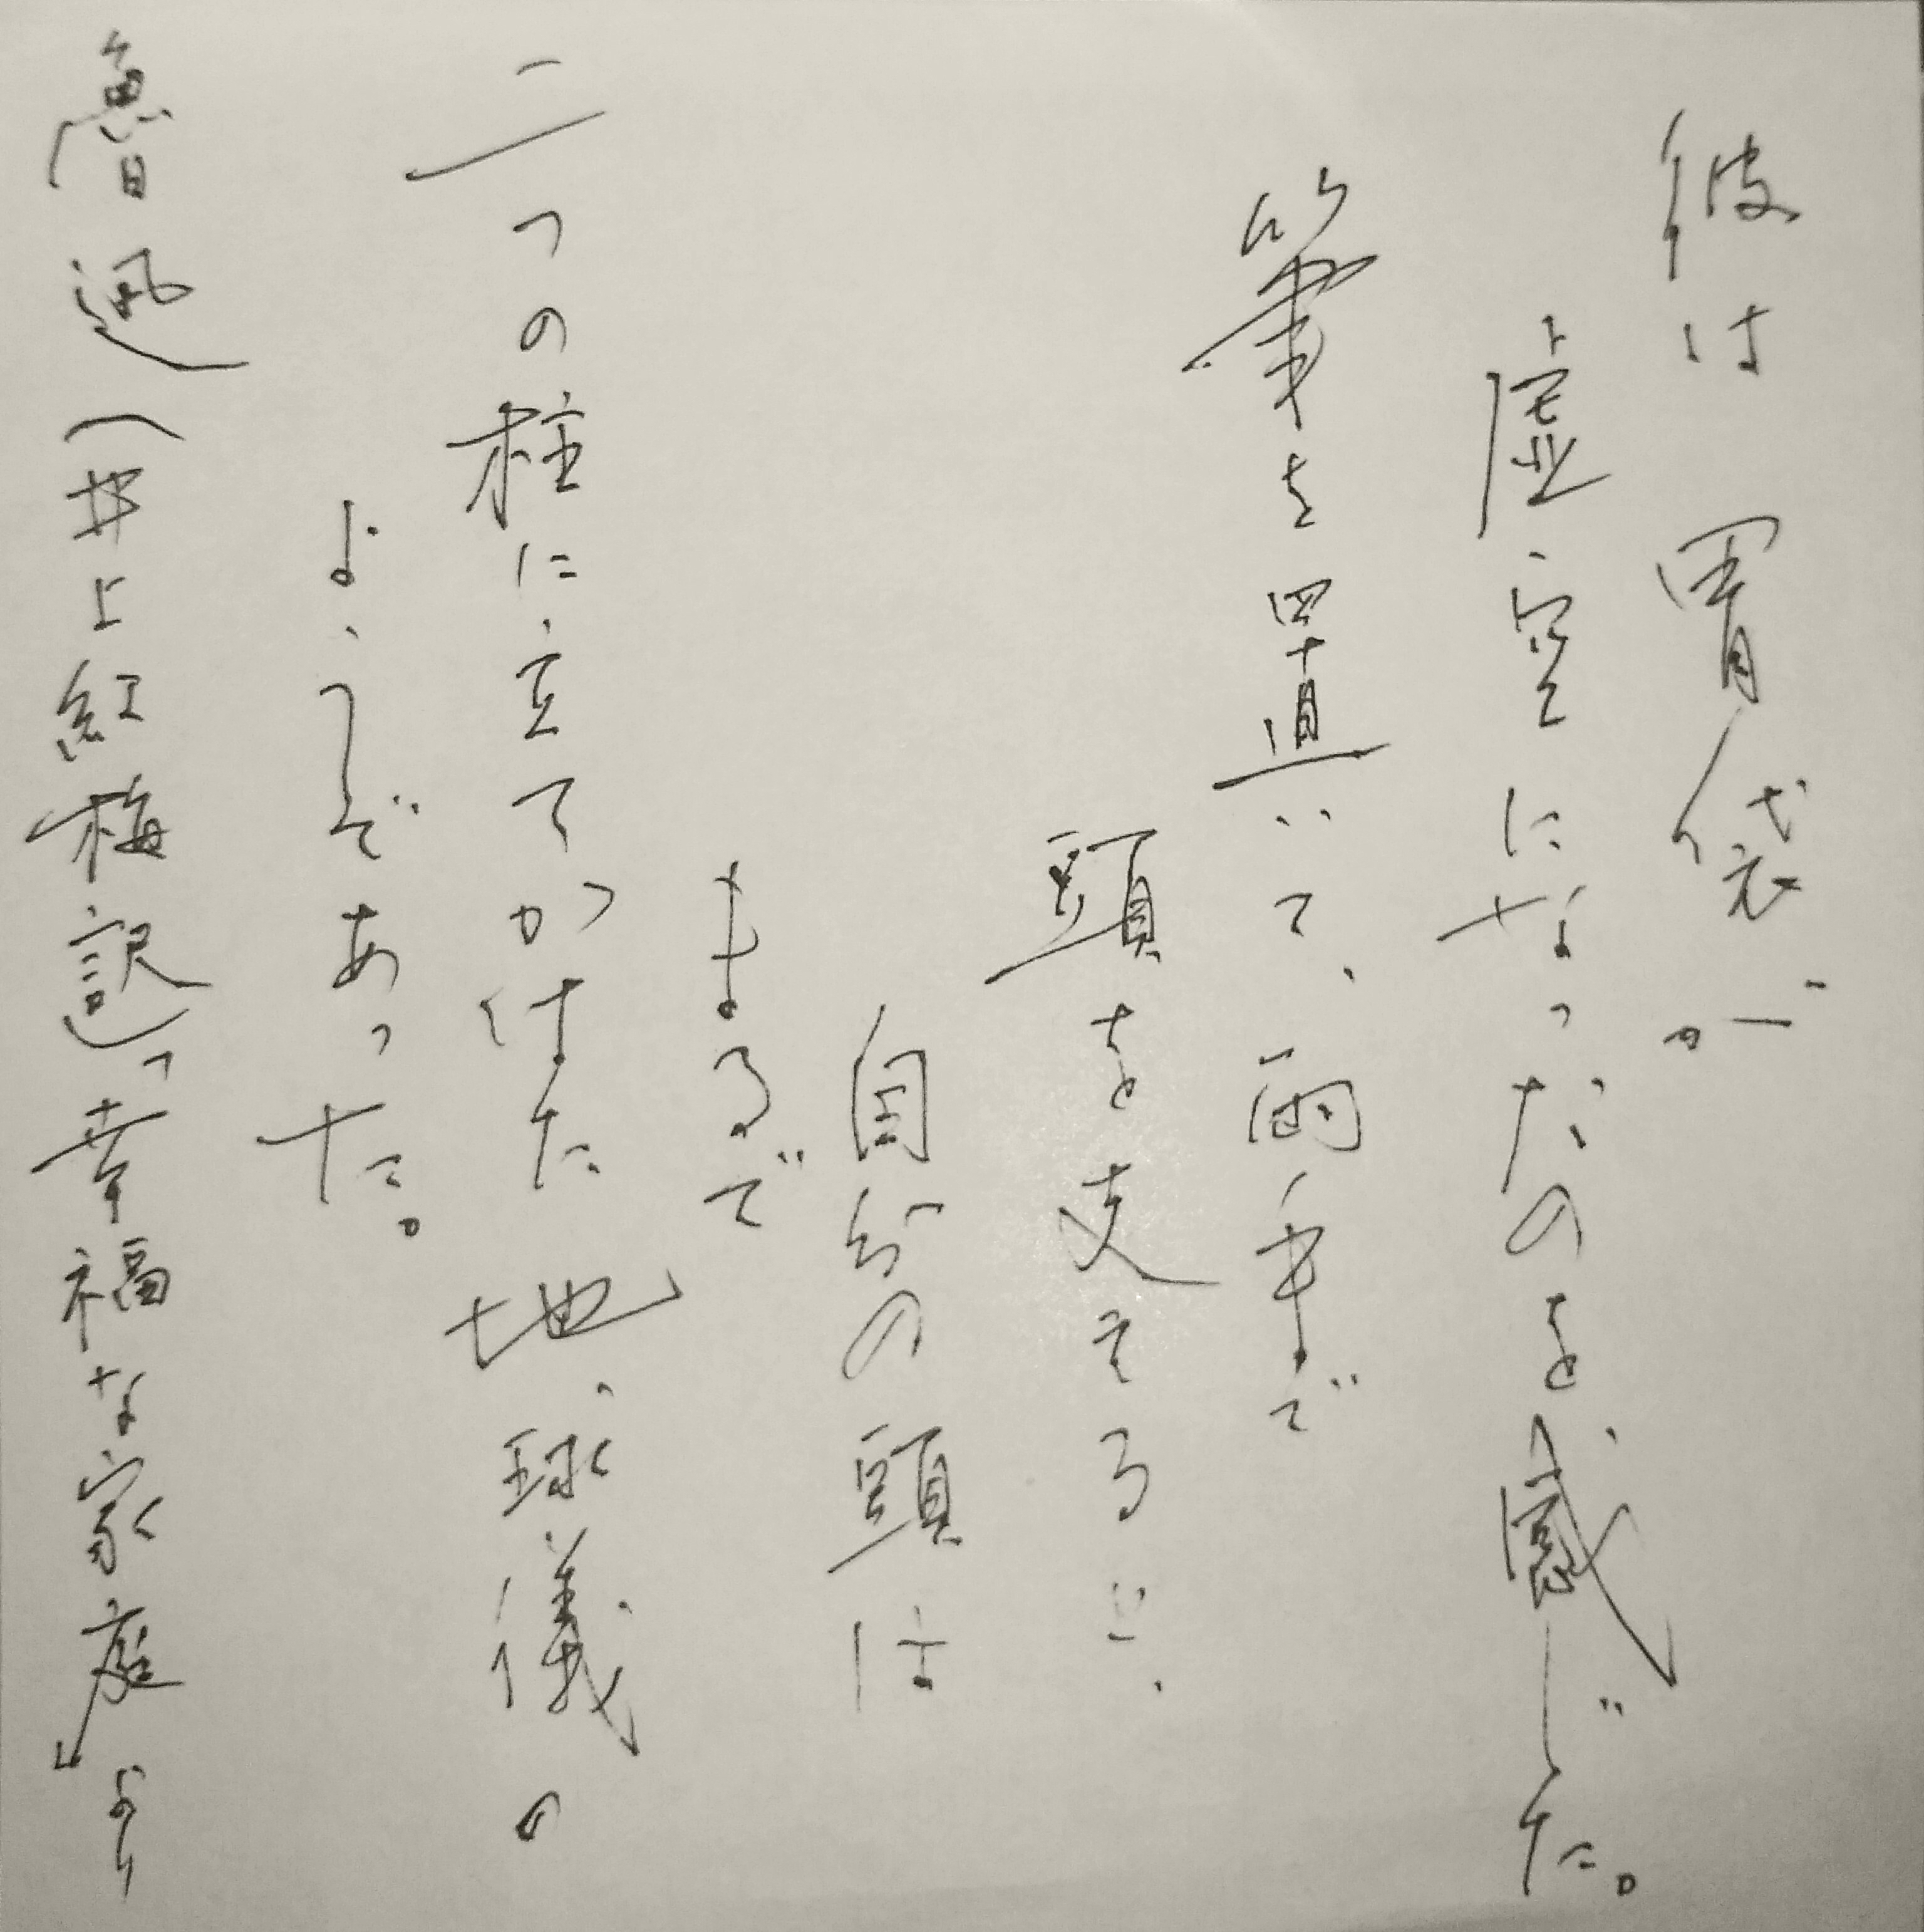 彼は胃袋が
虚空になったのを感じた。
筆を置いて、両手で
頭を支えると、
自分の頭は
まるで
二つの柱に立てかけた地球儀の
ようであった。
魯迅(井上紅梅訳)「幸福な家庭」より